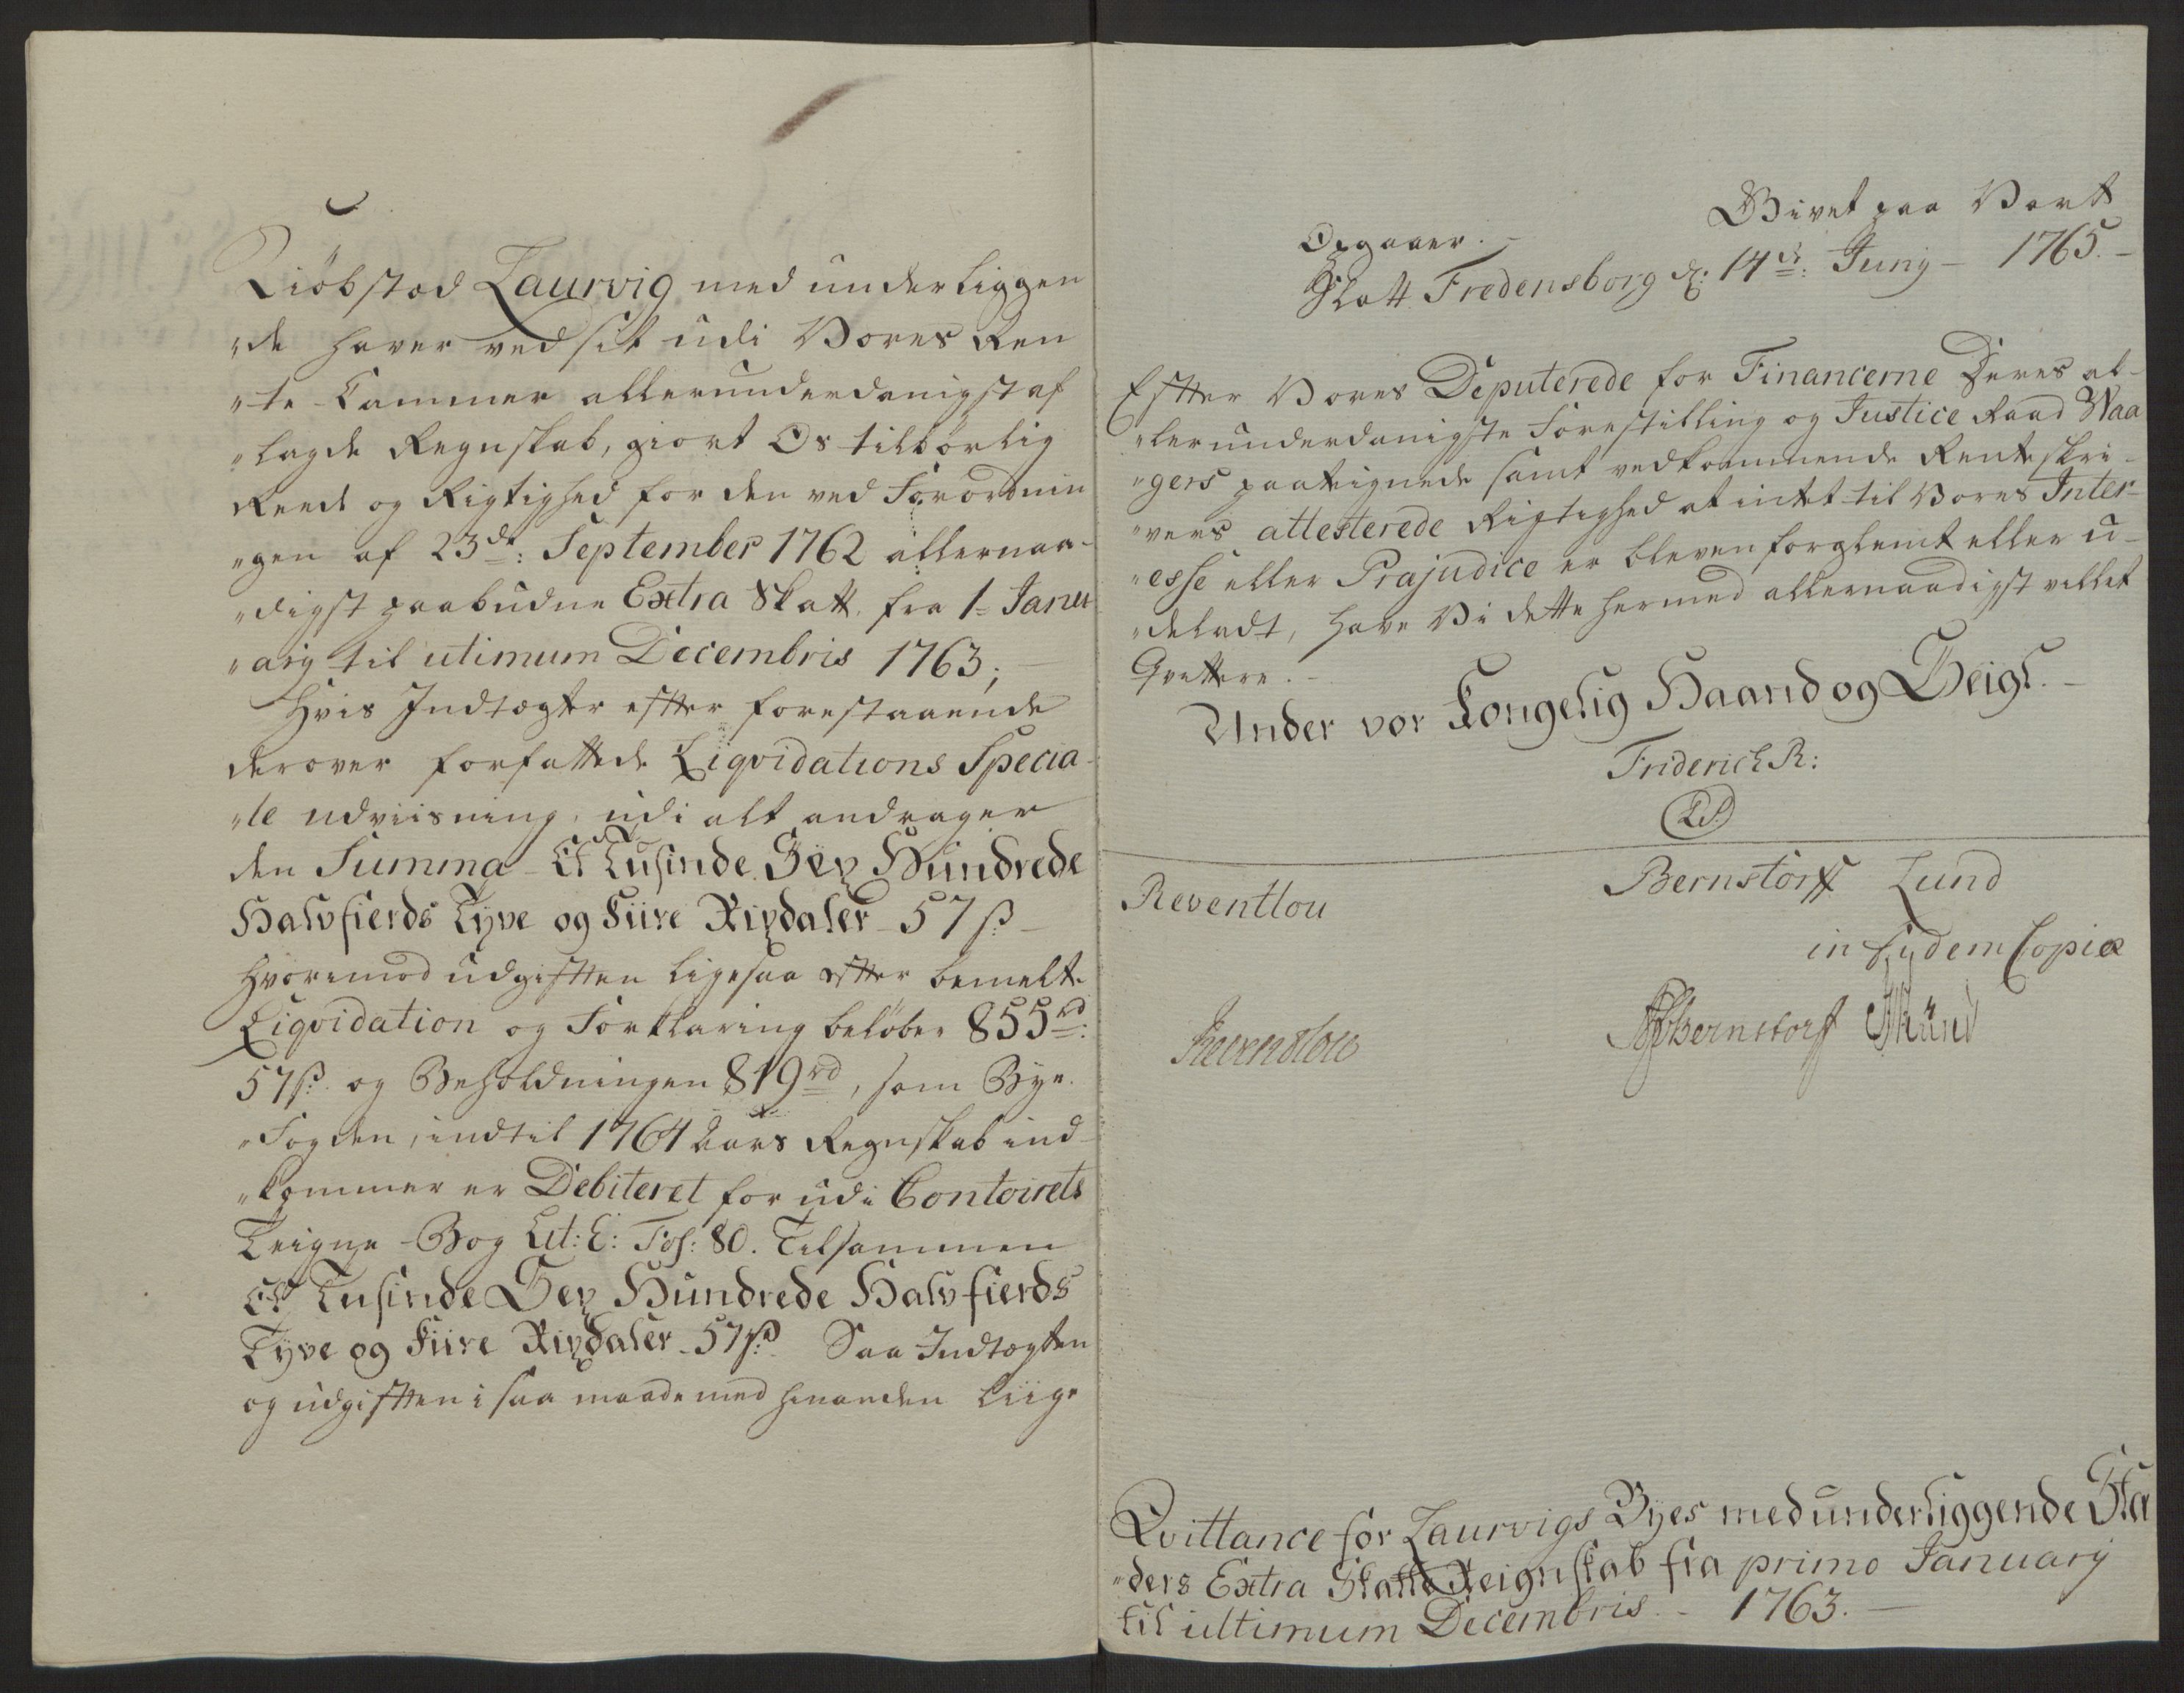 Kiöbstæd Laurvig med underliggen
„de haver ved sit udi Vores Ren
„te-Cammer allerunderdanigst af
„lagde Regnskab, giort Os tilbørlig
Reede og Rigtighed for den ved Forordnin
„gen af 23de: September 1762 allernaa-
„digst paabudne Extra Skatt fra 1= Janu
„arij til utimum Decembris 1763;
Hvis Indtægter efter forestaaende
derover forfattede Liqvidations Specia
„le udviisning, udi alt andrager
den Summa Et Tusinde Sex Hundrede
Halvfierds Tyve og Fiire Rixdaler 57 s
hvorimod udgiften ligesaa efter bemelte
Liqvidation og Forklaring beløber 855rd:
57s. og Beholdningen 819rd, som Bye-
„Fogden, indtil 1764 Aars Regnskab ind-
„kommer er Debiteret for udi Contoirets
Teigne-Bog Lit: E: Fol: 80. Tilsammen
Et Tusinde Sex Hundrede Halvfierds
Tyve og Fiire Rixdaler 57 s. Saa Indtægten
og udgiften i saa maade med hinanden liige
Opgaaer. - Givet paa Vort
Slott Fredensborg d: 14de: Junij - 1765. -
Efter Vores Deputerede for Financerne Deres al-
„lerunderdanigste Forestilling og Justice Raad Waa
„gers paateignede samt vedkommende Renteskri-
„vers attesterede Rigtighed at intet til Vores Inter-
„esse eller Præjudice er bleven forglemt eller u-
„deladt, have Vi dette hermed allernaadigst villet
Qvittere. -
Under vor Kongelig Haand og Seigl. -
Friderich R:
L.S.
Reventlou Bernstorff Lund
in fidem Copiæ
Reventlow Bernstorf Lund
Qvittance for Laurvigs Byes med underliggende Stæ
„ders Extra Skatte Reignskab fra primo Januarij
til ultimum Decembris - 1763. -